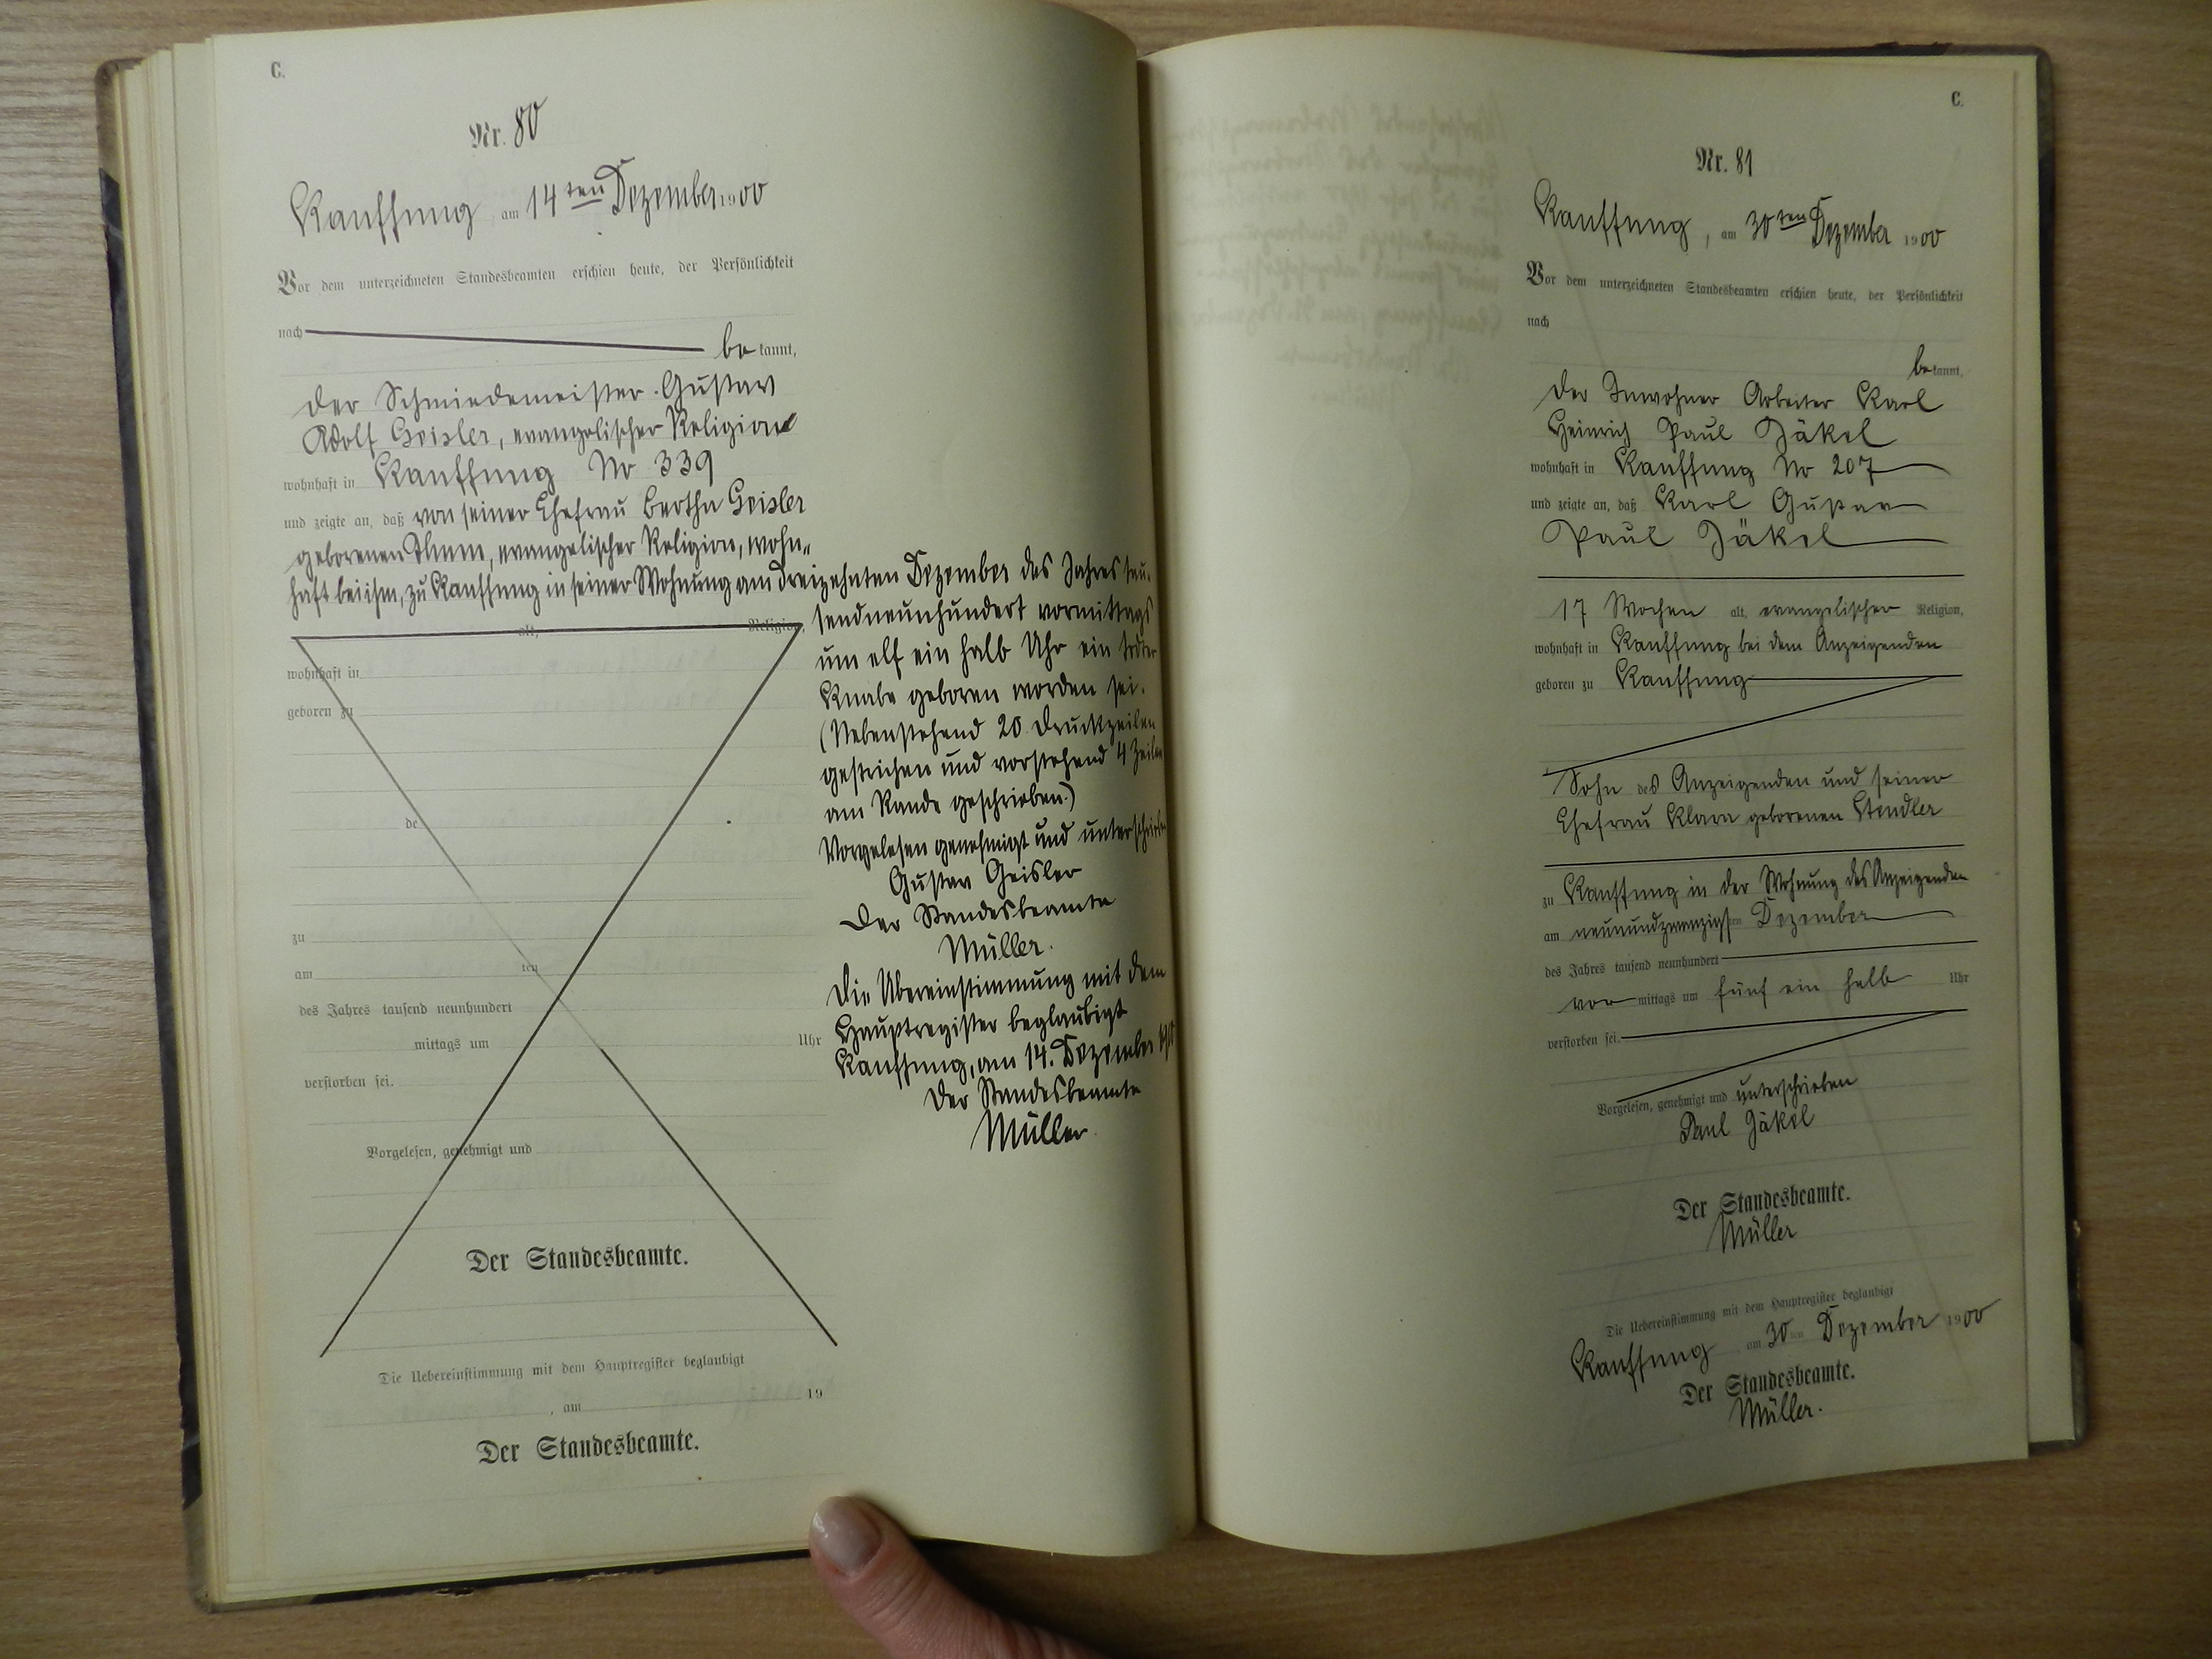 C.
Nr. 80
Kauffung am 14ten Dezember 1900
Vor dem unterzeichneten Standesbeamten erschien heute, der Persönlichkeit
nach
be kannt,
der Schmiedemeister Gustav
Adolf Geisler, evangelischer Religion
wohnhaft in Kauffung No 339
und zeigte an, daß von seiner Ehefrau Bertha Geisler
geborenen evangelischer Religion, wohn„
haft bei ihm, zu Kauffung in seiner Wohnung am dreizehnten Dezember des Jahres tau„
alt, Religion,
wohnhaft in
geboren zu
de
zu
am ten
des Jahres tausend neunhundert
mittags um Uhr
verstorben sei.
Vorgelesen, genehmigt und
Der Standesbeamte.
Die Uebereinstimmung mit dem Hauptregister beglaubigt
, am 19
Der Standesbeamte.
sendneunhundert vormittags
um elf ein halb Uhr ein todter
Knabe geboren worden sei.
(Nebenstehend 20 Druckzeilen
gestrichen und vorstehend 4 Zeilen
am Rande geschrieben.)
Vorgelesen genehmigt und unterschrieben
Gustav Geisler
Der Standesbeamte
Müller.
Die Übereinstimmung mit dem
Hauptregister beglaubigt
Kauffung, am 14. Dezember 1900
Der Standesbeamte
Müller
C.
Nr. 81
Kauffung, am 30ten Dezember 1900
Vor dem unterzeichneten Standesbeamten erschien heute, der Persönlichkeit
nach
be kannt,
der Inwohner Arbeiter Karl
Heinrich Paul Jäkel
wohnhaft in Kauffung No 207
und zeigte an, daß Karl Gustav
Paul Jäkel
17 Wochen alt, evangelischer Religion,
wohnhaft in Kauffung bei dem Anzeigenden
geboren zu Kauffung
Sohn des Anzeigenden und seiner
Ehefrau Klara geborenen Stendler
zu Kauffung in der Wohnung des Anzeigenden
am neunundzwanzigsten Dezember
des Jahres tausend neunhundert
vor mittags um fünf ein halb Uhr
verstorben sei.
Vorgelesen, genehmigt und unterschrieben
Paul Jäkel
Der Standesbeamte.
Müller
Die Uebereinstimmung mit dem Hauptregister beglaubigt
Kauffung am 30ten Dezember 1900
Der Standesbeamte.
Müller.